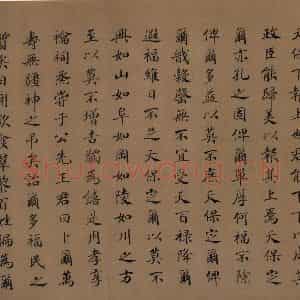 天保下報上也君能下下以成其
政臣能歸美以報上焉天保定
爾亦孔之固俾爾單厚何福不除
俾爾多益以莫不庶天保定爾俾
爾戩穀罄無不宜受天百祿降爾
遐福維日不足天保定爾以莫不
興如山如阜如岡如陵如川之方
至以莫不增吉蠲為饎是用孝享
禴祠烝嘗于公先王君曰卜爾萬
壽無疆神之弔矣詒爾多福民之
質矣日用飲食群黎百姓徧為爾